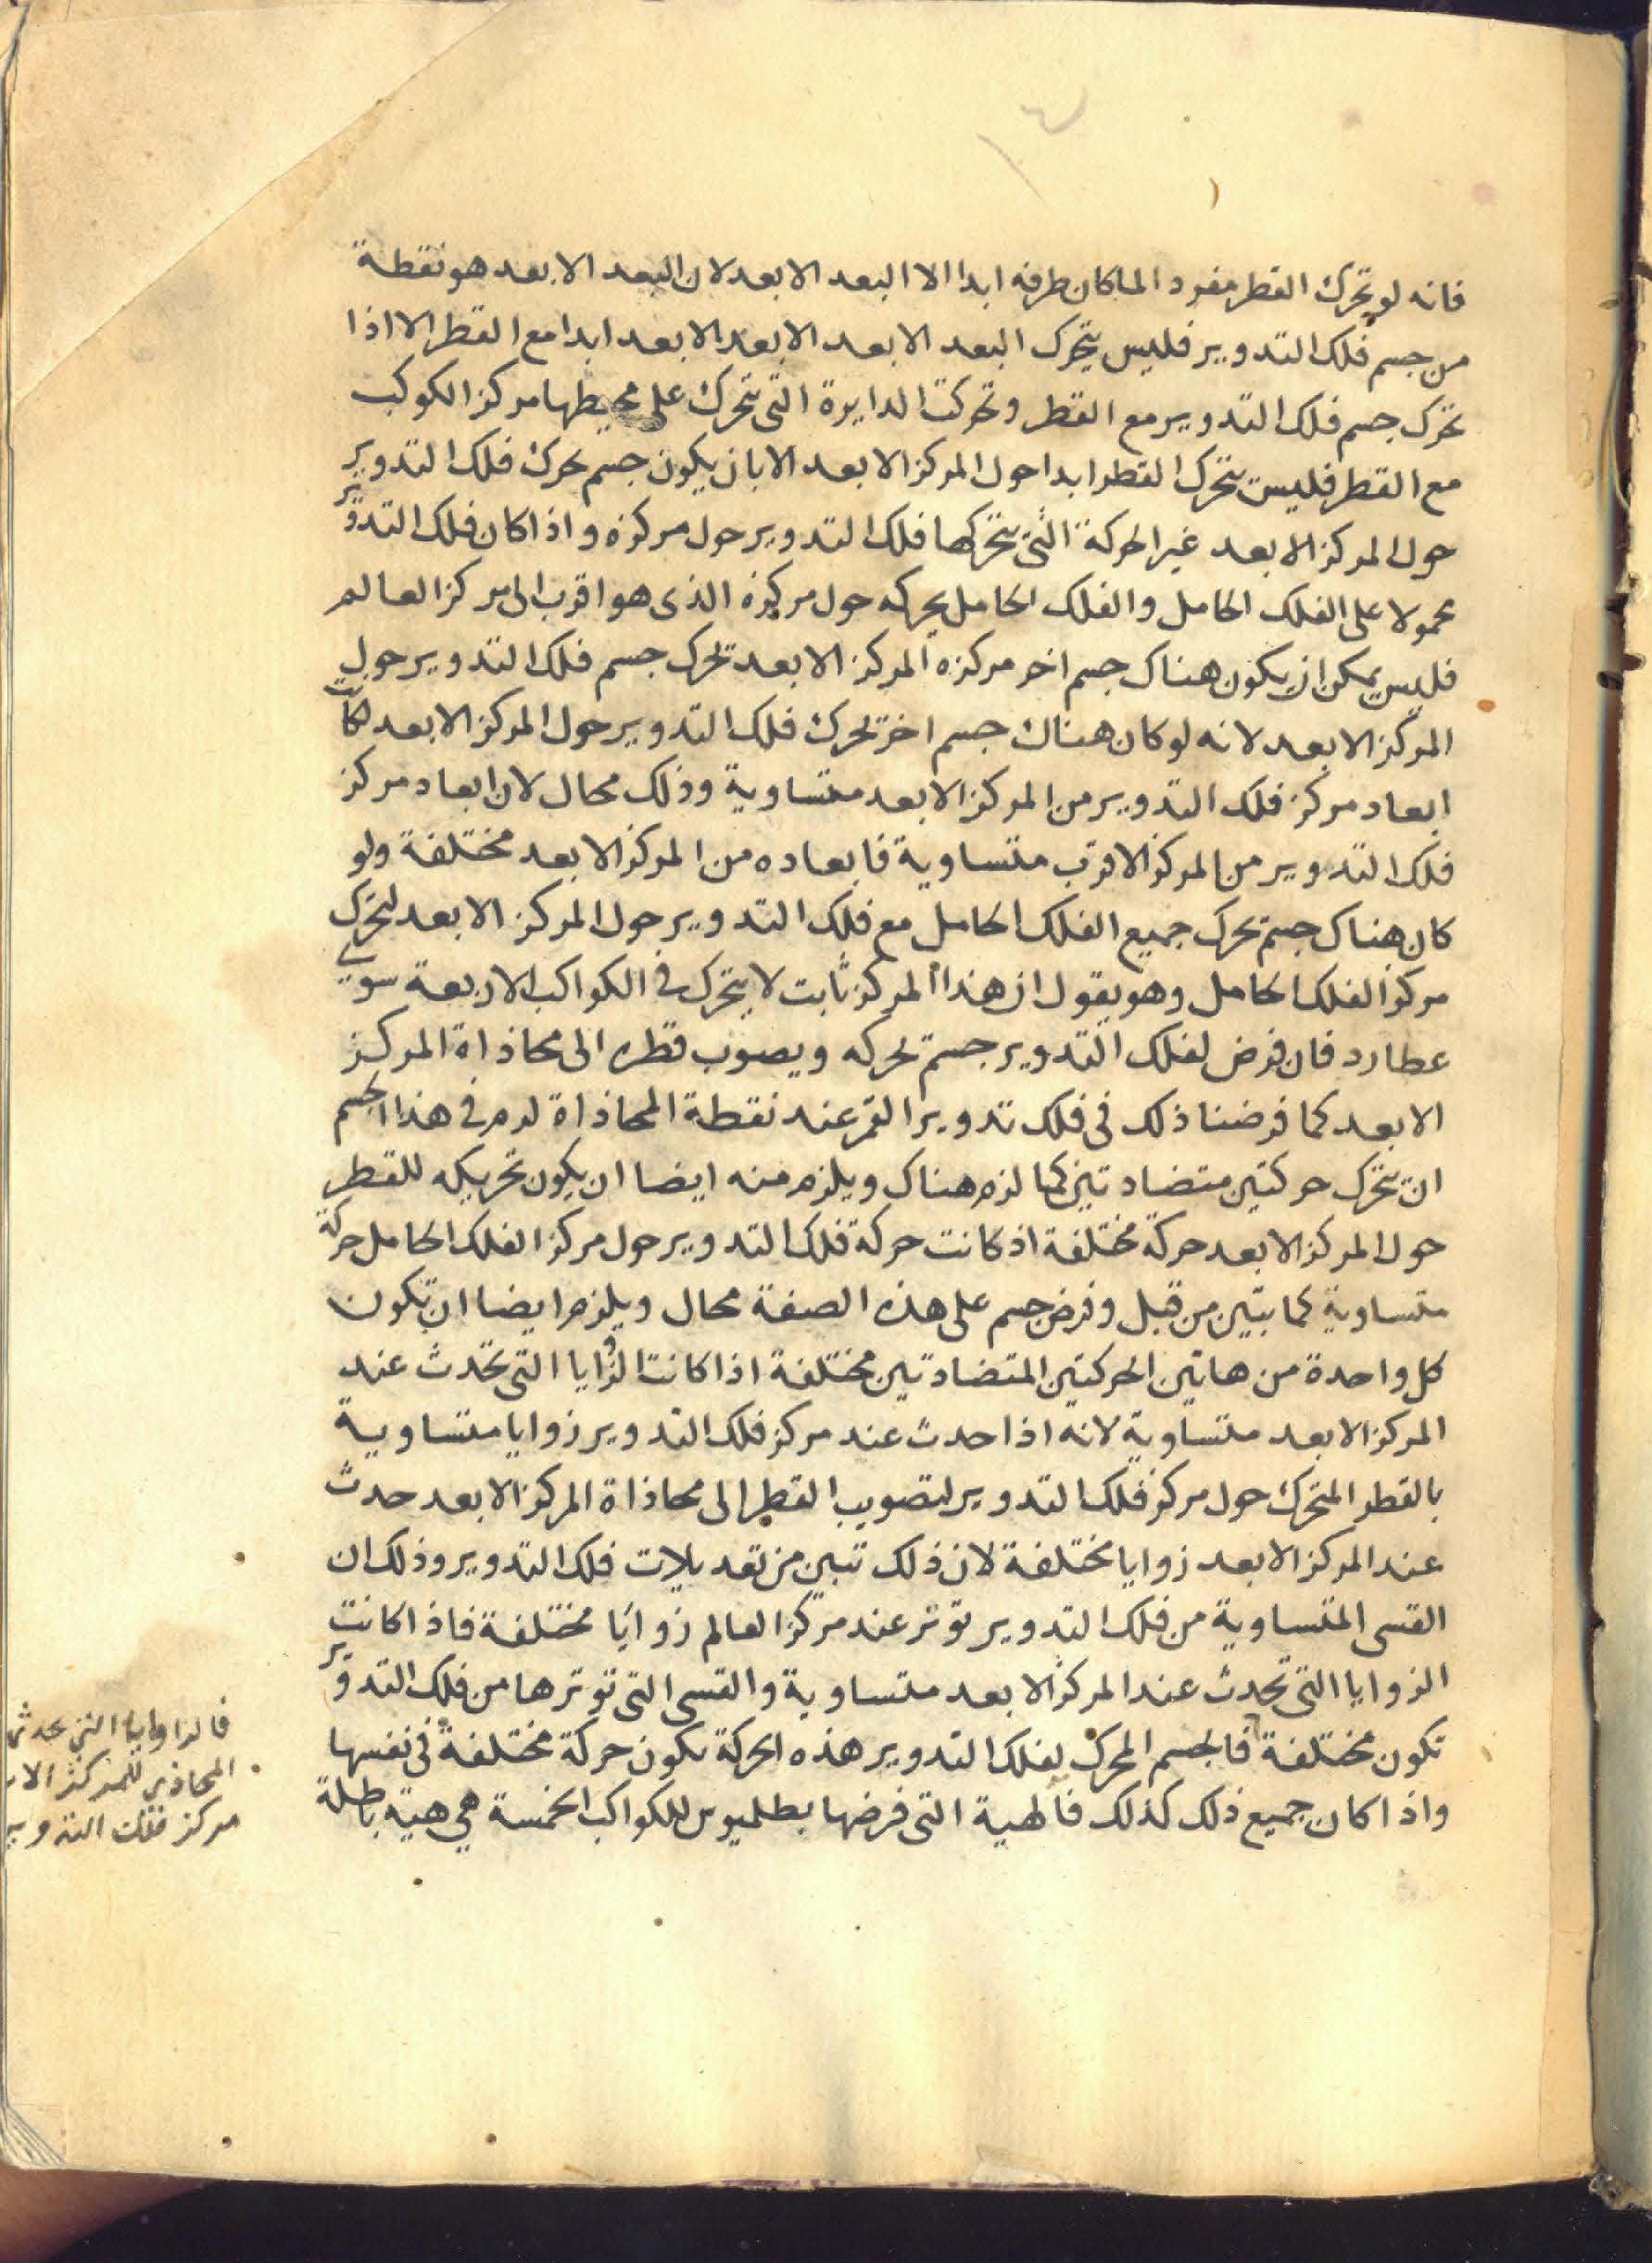 فانه لو تحرك القطر مفردا لما كان طرفه ابدا الا البعد الابعد لان البعد الابعد هو نقطة
من جسم فلك التدوير فليس يتحرك البعد الابعد الابعد الابعد ابدا مع القطر الا اذا
تحرك جسم فلك التدوير مع القطر وتحركت الدايرة التى تتحرك على محيطها مركز الكوكب
مع القطر فليس يتحرك القطر ابدا حول المركز الابعد الا بان يكون جسم يحرك فلك التدوير
حول المركز الابعد غير الحركة التى يتحركها فلك التدوير حول مركزه واذا كان فلك التدوير
محمولا على الفلك الحامل والفلك الحامل يحركه حول مركزه الذى هو اقرب الى مركز العالم
فليس يمكن ان يكون هناك جسم اخر مركزه المركز الابعد تحرك جسم فلك التدوير حول
المركز الابعد لانه لو كان هناك جسم اخر تحرك فلك التدوير حول المركز الابعد لكانت
ابعاد مركز فلك التدوير من المركز الابعد متساوية وذلك محال لان ابعاد مركز
فلك التدوير من المركز الاقرب متساوية فابعاده من المركز الابعد مختلفة ولو
كان هناك جسم تحرك جميع الفلك الحامل مع فلك التدوير حول المركز الابعد لتحرك
مركز الفلك الحامل وهو يقول ان هذا المركز ثابت لا يتحرك فى الكواكب الاربعة سوى
عطارد فان فرض لفلك التدوير جسم تحركه ويصوب قطره الى محاذاة المركز
الابعد كما فرضنا ذلك فى فلك تدوير القمر عند نقطة المحاذاة لزم فى هذا الجسم
ان يتحرك حركتين متضادتين كما لزم هناك ويلزم منه ايضا ان يكون تحريكه للقطر
حول المركز الابعد حركة مختلفة اذ كانت حركة فلك التدوير حول مركز الفلك الحامل حركة
متساوية كما تبين من قبل وفرض جسم على هذه الصفة محال ويلزم ايضا ان تكون
كل واحدة من هاتين الحركتين المتضادتين مختلفة اذا كانت الزوايا التى تحدث عند
المركز الابعد متساوية لانه اذا حدث عند مركز فلك التدوير زوايا متساوية
بالقطر المتحرك حول مركز فلك التدوير لتصويب القطر الى محاذاة المركز الابعد حدث
عند المركز الابعد زوايا مختلفة لان ذلك تبين من تعديلات فلك التدوير وذلك ان
القسى المتساوية من فلك التدوير توتر عند مركز العالم زوايا مختلفة فاذا كانت
الزوايا التى تحدث عند المركز الابعد متساوية والقسى التى توترها من فلك التدوير
تكون مختلفة فالجسم المحرك لفلك التدوير هذه الحركة تكون حركة مختلفة فى نفسها
واذا كان جميع ذلك كذلك فالهية التى فرضها بطلميوس للكواكب الخمسة هى هية باطلة
فالزاوايا التى يحدثها
المحاذى للمركز
مركز فلك التدوير